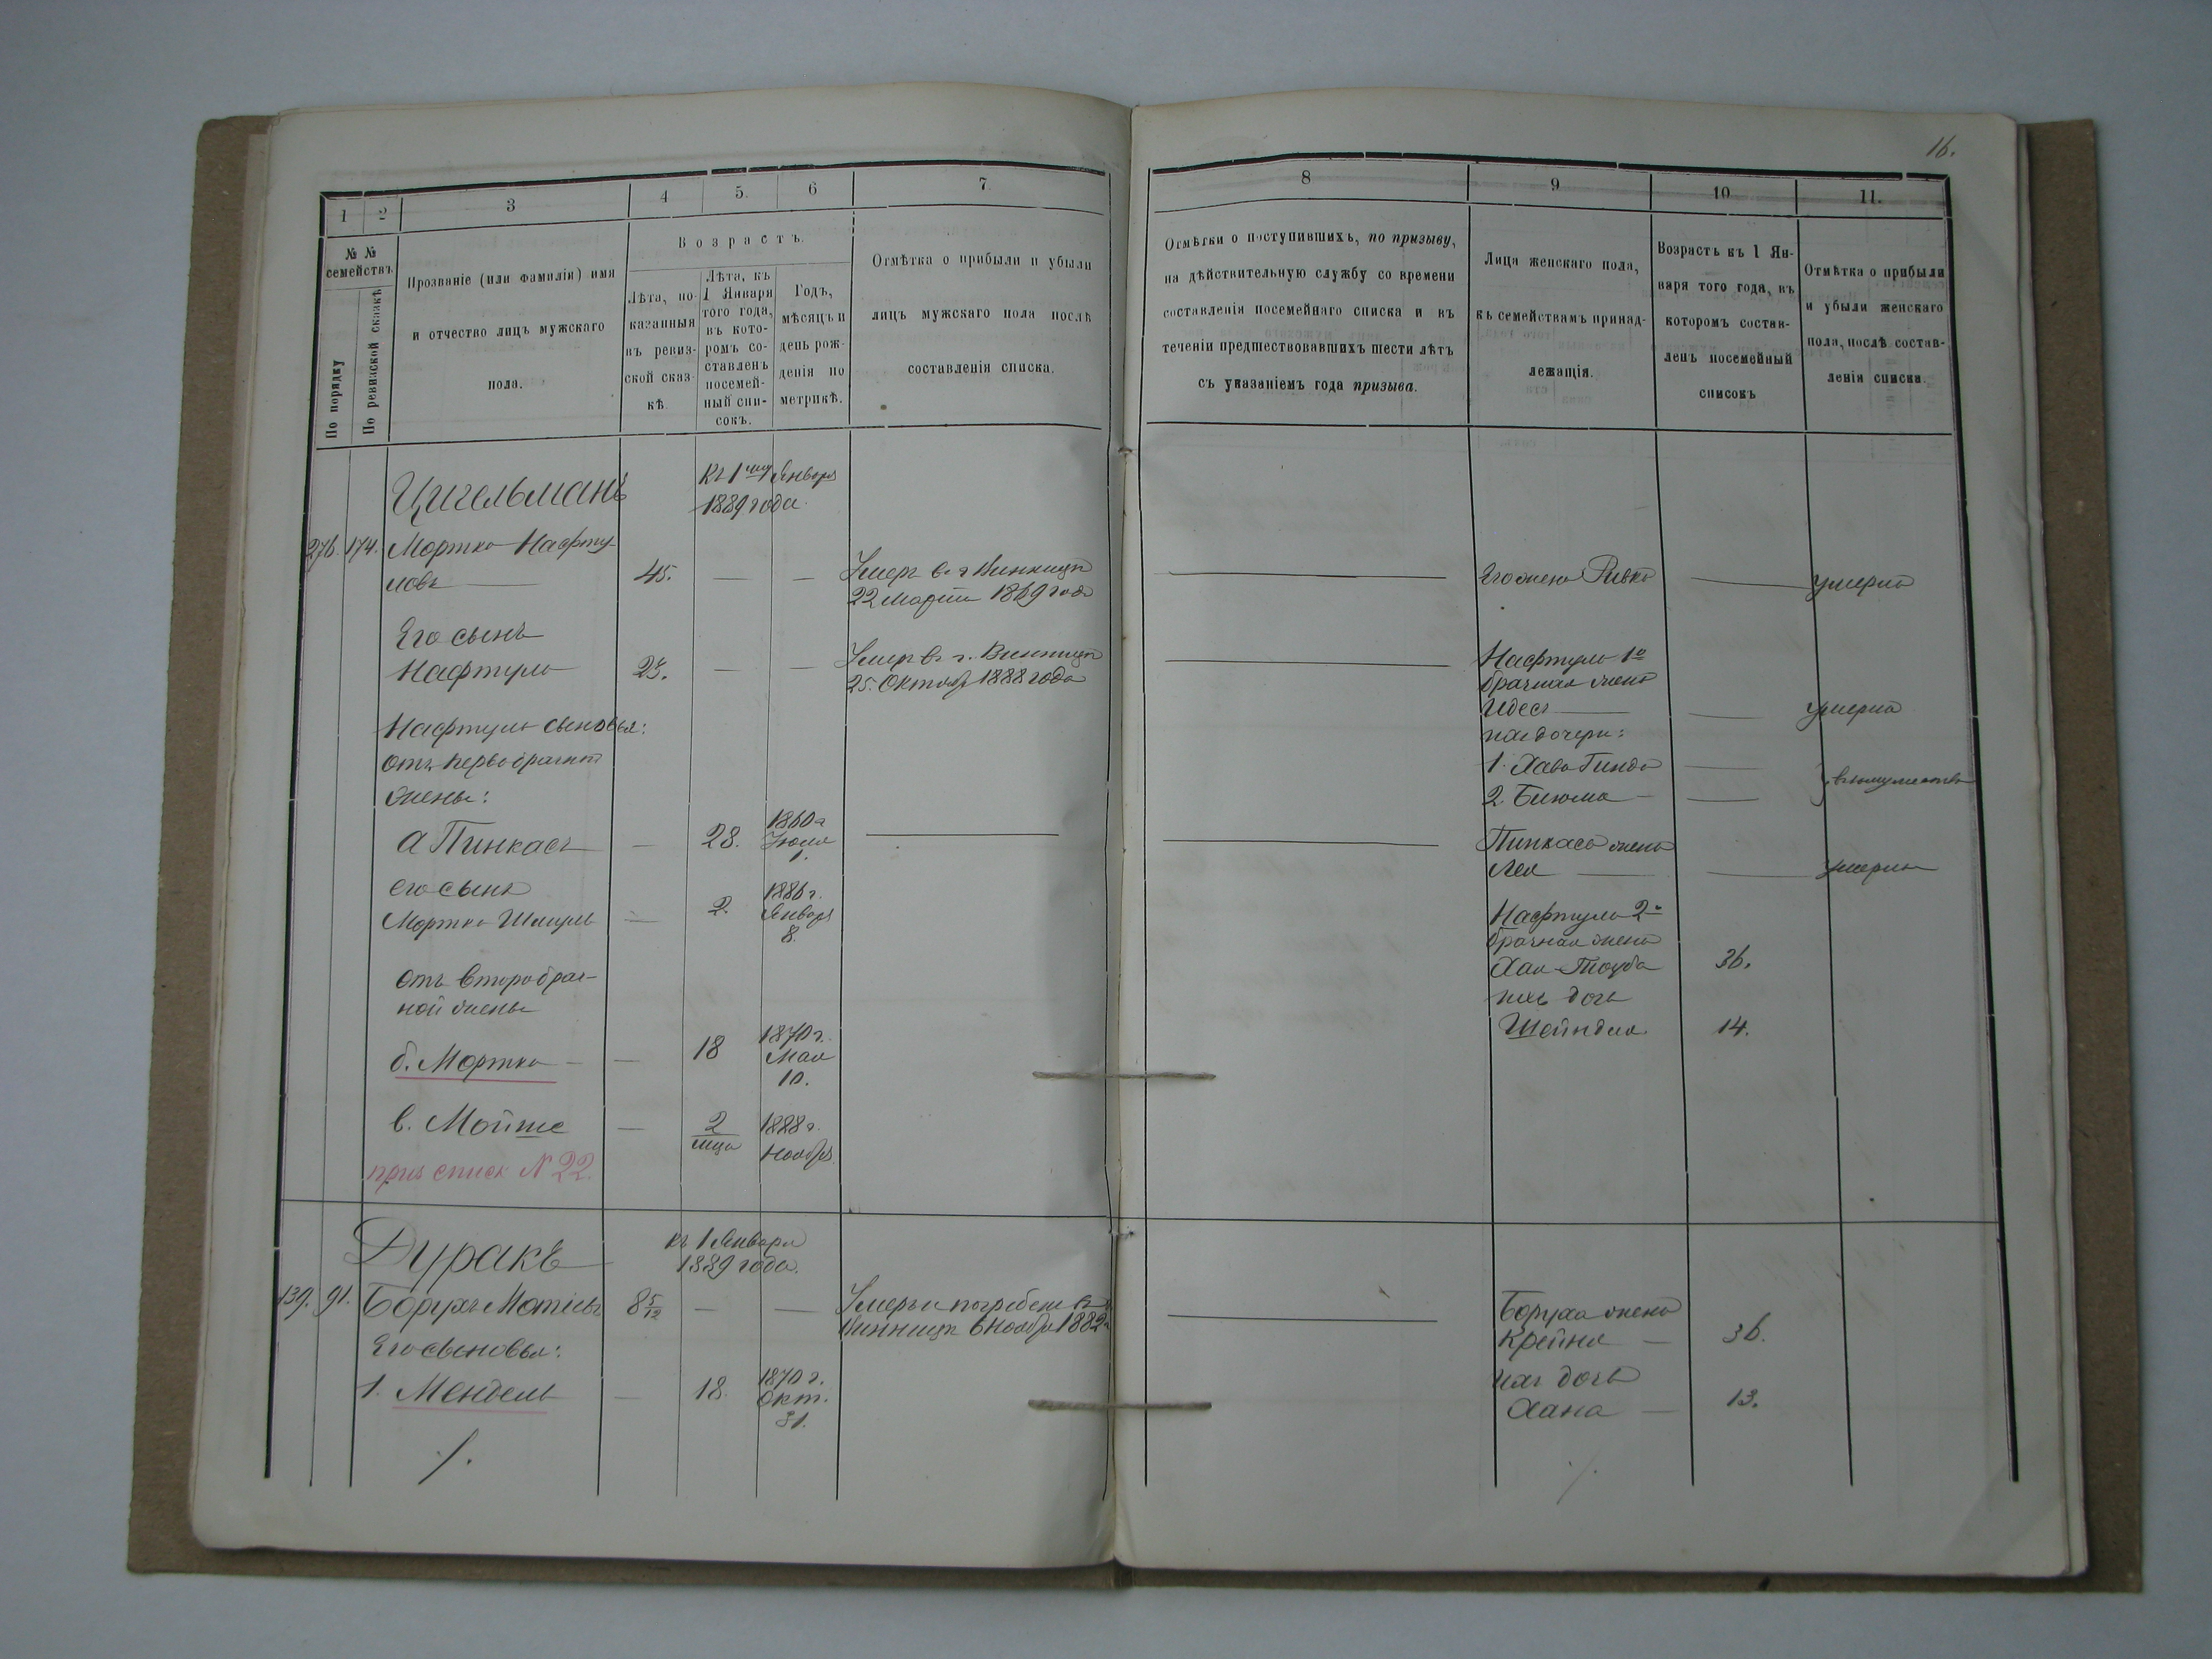 16.
1
2
3
4
5.
6
7
8
9
10
11.
№ №
семействъ
По порядку
По ревизской сказкѣ
Прозваніе (или фамилія) имя
и отчество лицъ мужскаго
пола.
Возрастъ.
Лѣта, по-
казанныя
въ ревиз-
ской сказ-
кѣ.
Лѣта, къ
1 Января
того года,
въ кото-
ромъ со-
ставленъ
посемей-
ный спи-
сокъ.
Годъ,
мѣсяцъ и
день рож-
денія по
метрикѣ.
Отмѣтка о прибыли и убыли
лицъ мужскаго пола послѣ
составленія списка.
Отмѣтки о поступившихъ, по призыву,
на дѣйствительную службу со времени
составленія посемейнаго списка и въ
теченіи предшествовавшихъ шести лѣтъ
съ указаніемъ года призыва.
Лица женскаго пола,
къ семействамъ принад-
лежащія.
Возрастъ къ 1 Ян-
варя того года, въ
которомъ состав-
ленъ посемейный
списокъ
Отмѣтка о прибыли
и убыли женскаго
пола, послѣ состав-
ленія списка.
Цигельманъ
Къ 1му Января
1889 года.
276. 174. Мортко Нафту-
ловъ 45. — — Умеръ в. г Винницѣ
22 Марта 1869 года
Его жена Ривка умерла
Его сынъ
Нафтула 23. — — Умеръ в. г. Винницѣ
25. Октяб 1888 года
Нафтулы 1о
брачная жена
Идесъ — — умерла
Нафтулы сыновья:
отъ первобрачной
жены:
ихъ дочери:
1. Хава Гинда —
2. Бигома — —
} въ замужествѣ
а Пинкасъ — 28. 1860 г
Іюля
1.
Пинкаса жена
Лея — — умерла
его сынъ
Мортко Шмуль — 2. 1886 г.
Января
8.
Нафтулы 2а
брачная жена
Хая-Тауба 36.
ихъ дочь
Шейндля 14.
отъ второбрач-
ной жены
б. Мортко — — 18 1870 г.
Мая
10.
в. Мойше — 2
мца 1888 г.
Ноября
приз списк N 22.
Дуракъ
къ 1 Января
1889 года.
139. 91. Борухъ Мотіевъ 8 5/12 — — Умеръ и погребенъ в г.
Винницѣ 6 Ноября 1882 г
Боруха жена
Крейня — 36.
Его сыновья:
1. Мендель — 18. 1870 г.
Окт.
31.
ихъ дочь
Хана — 13.